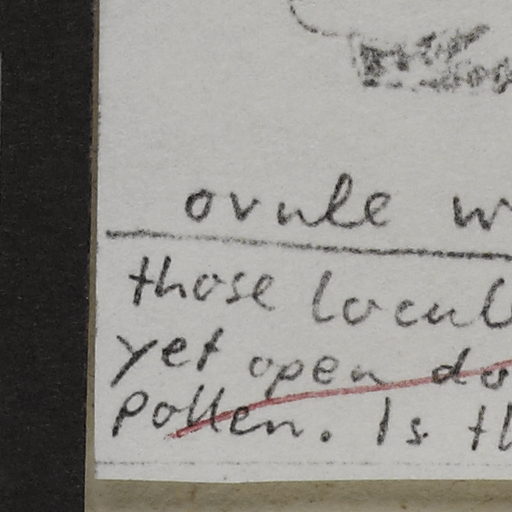 ovule w
those locul
yet open do
pollen. Is th